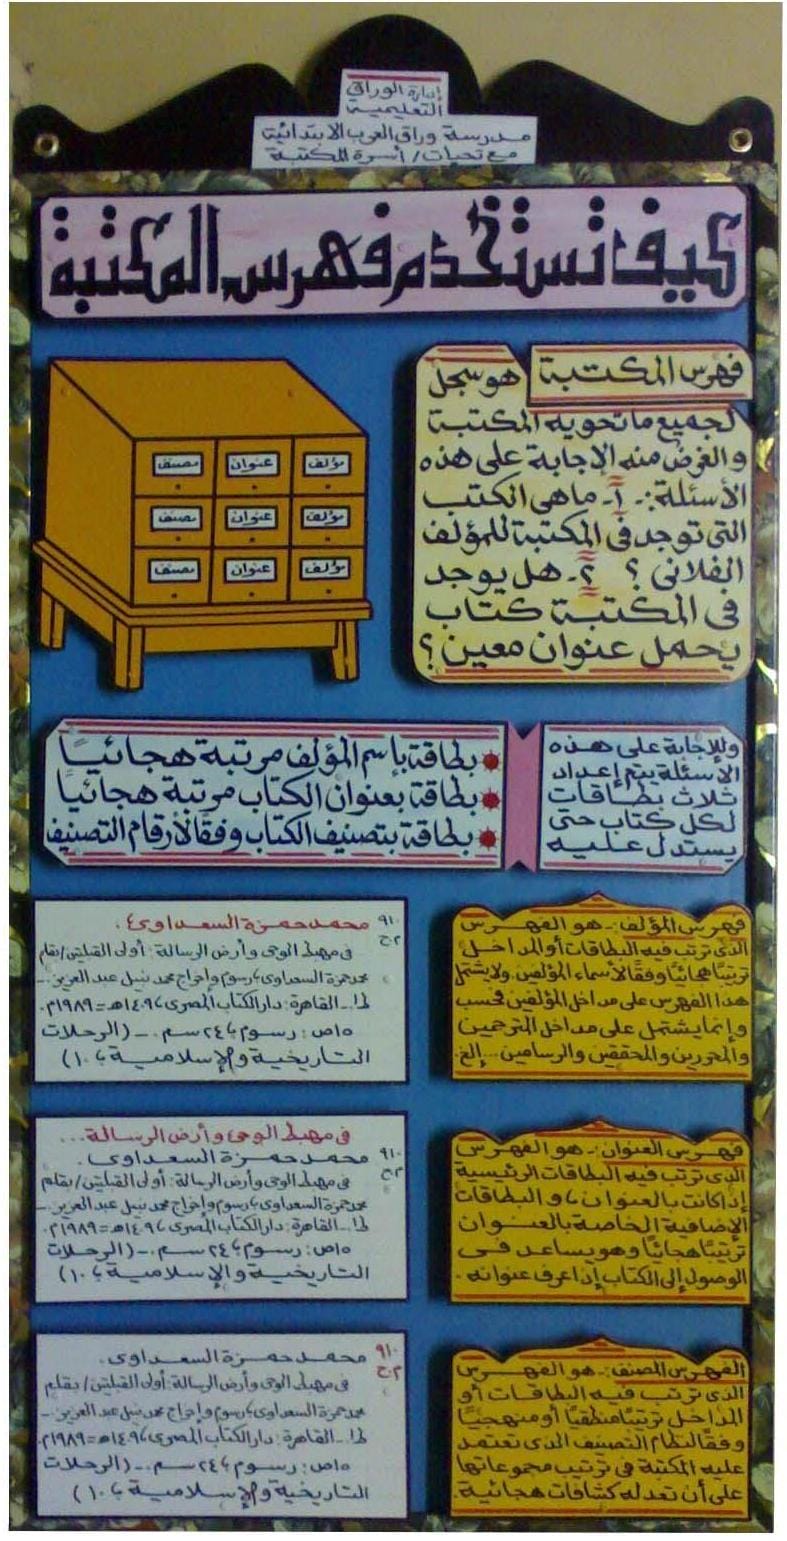 إدارة الوراق
التعليمية
مدرسة وراق العرب الابتدائية
مع تحيات/ أسرة المكتبة
كيف تستخدم فهرس المكتبة
فهرس المكتبة هو سجل
لجميع ما تحويه المكتبة
والغرض منه الإجابة على هذه
الأسئلة:ـ ١ـ ما هى الكتب
التى توجد فى المكتبة للمؤلف
الفلانى ؟ ٢ـ هل يوجد
فى المكتبة كتاب
يحمل عنوان معين ؟
مؤلف عنوان مصنف
مؤلف عنوان مصنف
مؤلف عنوان مصنف
وللإجابة على هذه
الأسئلة يتم إعداد
ثلاث بطاقات
لكل كتاب حتى
يستدل عليه
بطاقة بإسم المؤلف مرتبة هجائياً
بطاقة بعنوان الكتاب مرتبة هجائياً
بطاقة بتصنيف الكتاب وفقًا لأرقام التصنيف
فهرس المؤلف:ـ هو الفهرس
الذى ترتب فيه البطاقات أو المداخل
ترتيبًا هجائيًا وفقًا لأسماء المؤلفين. ولا يشتمل
هذا الفهرس على مداخل المؤلفين فحسب
وإنما يشتمل على مداخل المترجمين
والمحررين والمحققين والرسامين ...إلخ.
٩١٠ محمد حمزة السعداوى،
م.ح فى مهبط الوحى وأرض الرسالة: أولى القبلتين/ بقلم
محمد حمزة السعداوى، رسوم وإخراج محمد نبيل عبد العزيز.ـ
ط١.ـ القاهرة: دار الكتاب المصرى، ١٤٠٩هـ=١٩٨٩م.
١٥ص: رسوم، ٢٤ سم.ـ (الرحلات
التاريخية والإسلامية، ١٠)
فهرس العنوان:ـ هو الفهرس
الذى ترتب فيه البطاقات الرئيسية
إذا كانت بالعنوان، والبطاقات
الإضافية الخاصة بالعنوان
ترتيبًا هجائيًا وهو يساعد فى
الوصول إلى الكتاب إذا عرف عنوانه.
فى مهبط الوحى وأرض الرسالة...
٩١٠ محمد حمزة السعداوى.
م.ح فى مهبط الوحى وأرض الرسالة: أولى القبلتين/ بقلم
محمد حمزة السعداوى، رسوم وإخراج محمد نبيل عبد العزيز.ـ
ط١.ـ القاهرة: دار الكتاب المصرى، ١٤٠٩هـ=١٩٨٩م.
١٥ص: رسوم، ٢٤ سم.ـ (الرحلات
التاريخية والإسلامية، ١٠)
الفهرس المصنف:ـ هو الفهرس
الذى ترتب فيه البطاقات أو
المداخل ترتيبًا منطقيًا أو منهجيًا
وفقًا لنظام التصنيف الذى تعتمد
عليه المكتبة فى ترتيب مجموعاتها
على أن تعد له كشافات هجائية.
٩١٠ محمد حمزة السعداوى.
م.ح فى مهبط الوحى وأرض الرسالة: أولى القبلتين/ بقلم
محمد حمزة السعداوى، رسوم وإخراج محمد نبيل عبد العزيز.ـ
ط١.ـ القاهرة: دار الكتاب المصرى، ١٤٠٩هـ=١٩٨٩م.
١٥ص: رسوم، ٢٤ سم.ـ (الرحلات
التاريخية والإسلامية، ١٠)